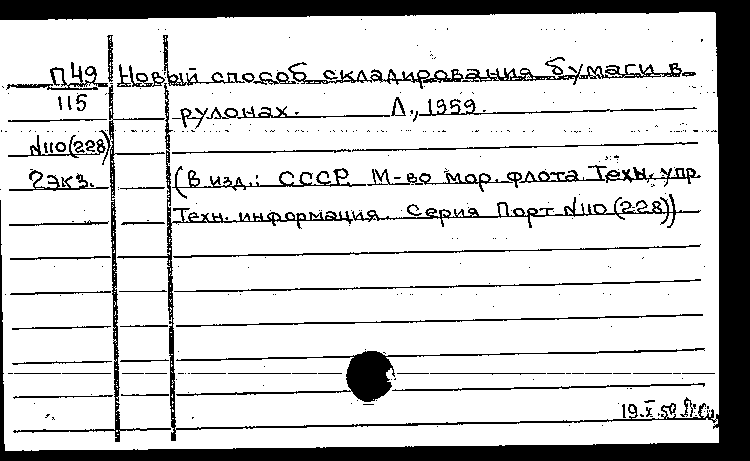 П49 Новый способ складирования бумаги в
115 рулонах. Л., 1959.
N110(228)
2экз. (В изд.: СССР. М-во мор. флота. Техн. упр.
Техн. информация. Серия Порт N110 (228))
19.X.59